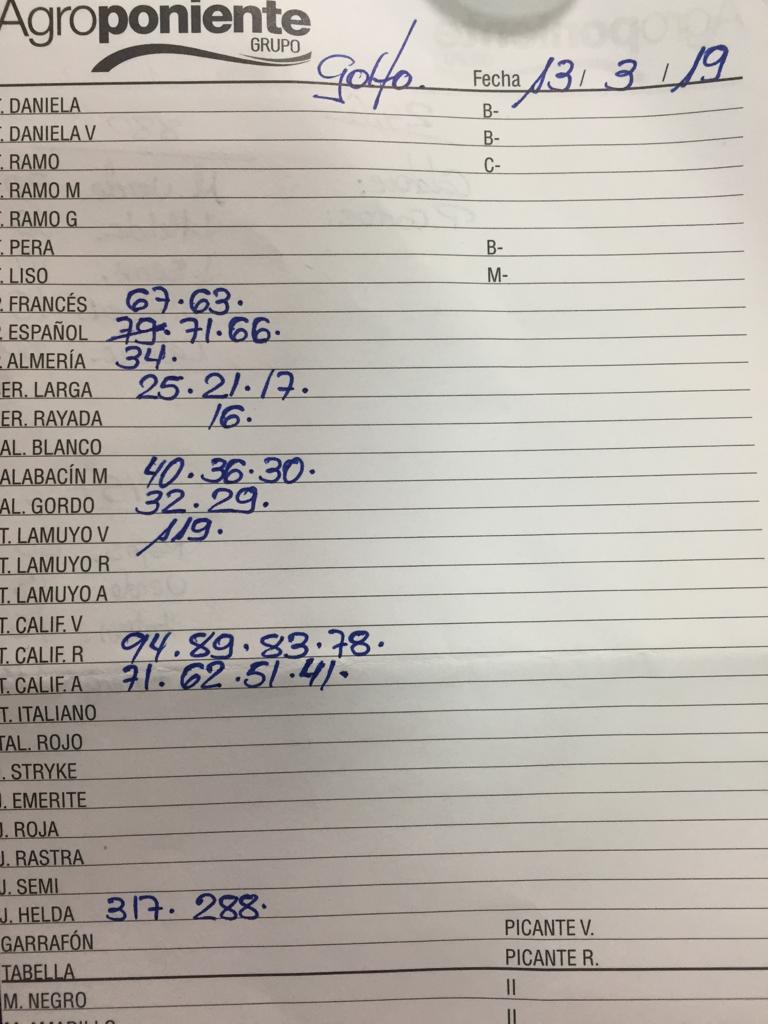 Agroponiente
GRUPO
Golfo. Fecha 13/ 3 / 19
T. DANIELA B-
T. DANIELA V B-
T. RAMO C-
T. RAMO M
T. RAMO G
T. PERA B-
T. LISO M-
P. FRANCÉS 67.63.
P. ESPAÑOL 79. 71.66.
ALMERÍA 34.
ER. LARGA 25.21.17.
ER. RAYADA 16.
AL. BLANCO
ALABACÍN M 40.36.30.
AL. GORDO 32.29.
T. LAMUYO V 119.
T. LAMUYO R
T. LAMUYO A
T. CALIF. V
T. CALIF. R 94.89.83.78.
T. CALIF. A 71.62.51.41.
T. ITALIANO
TAL. ROJO
J. STRYKE
J. EMERITE
J. ROJA
J. RASTRA
J. SEMI
J. HELDA 317. 288.
GARRAFÓN PICANTE V.
TABELLA PICANTE R.
M. NEGRO II
II